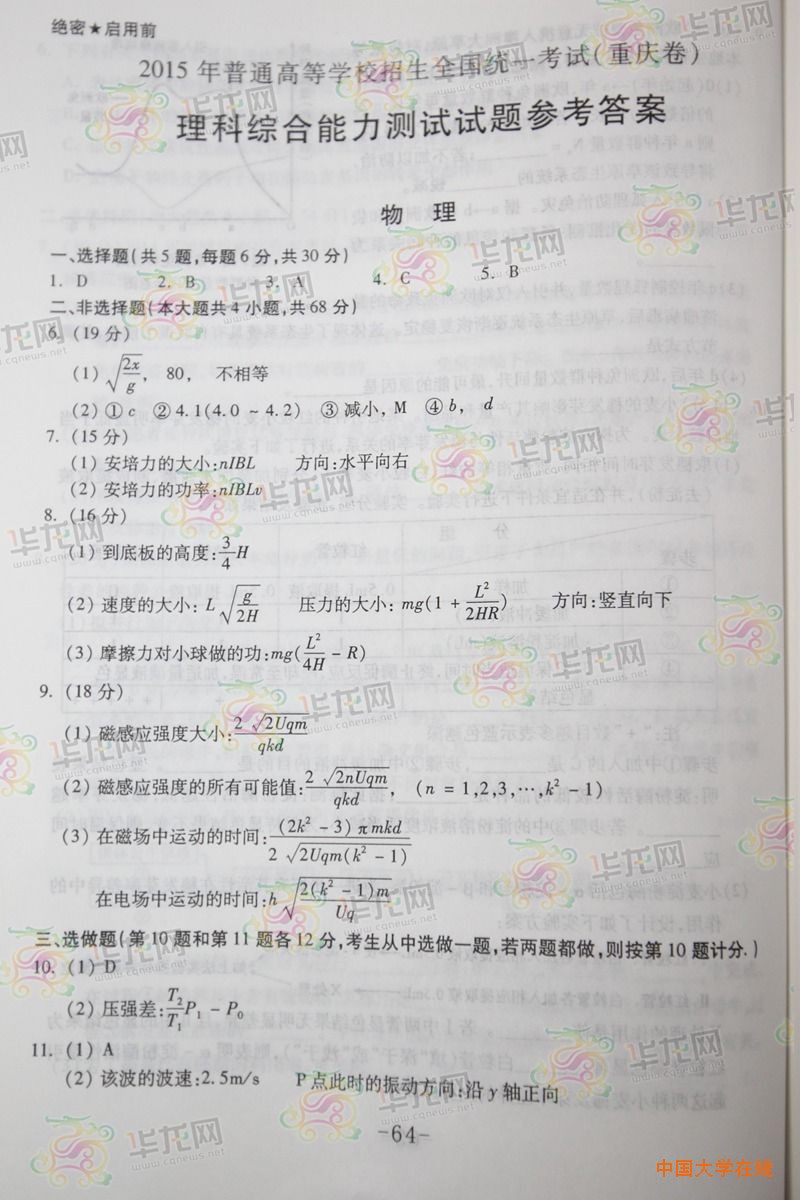 绝密★启用前
2015年普通高等学校招生全国统一考试(重庆卷)
理科综合能力测试试题参考答案
物 理
一、选择题(共5题,每题6分,共30分)
1. D 2. B 3. A 4. C 5. B
二、非选择题(本大题共4小题,共68分)
6. (19分)
(1) √(2x/g), 80, 不相等
(2) ① c ② 4.1(4.0 ~ 4.2) ③ 减小, M ④ b, d
7. (15分)
(1) 安培力的大小:nIBL 方向:水平向右
(2) 安培力的功率:nIBLv
8. (16分)
(1) 到底板的高度:3/4 H
(2) 速度的大小: L√(g/2H) 压力的大小: mg(1 + L²/2HR) 方向:竖直向下
(3) 摩擦力对小球做的功:mg(L²/4H - R)
9. (18分)
(1) 磁感应强度大小:2√(2Uqm)/qkd
(2) 磁感应强度的所有可能值:2√(2nUqm)/qkd, (n = 1,2,3,…,k² - 1)
(3) 在磁场中运动的时间:(2k² - 3)πmkd/2√(2Uqm(k² - 1))
在电场中运动的时间:h√(2(k² - 1)m/Uq)
三、选做题(第10题和第11题各12分,考生从中选做一题,若两题都做,则按第10题计分.)
10. (1) D
(2) 压强差:T₂/T₁ P₁ - P₀
11. (1) A
(2) 该波的波速:2.5m/s P点此时的振动方向:沿y轴正向
-64-
中国大学在线
华龙网
www.cqnews.net